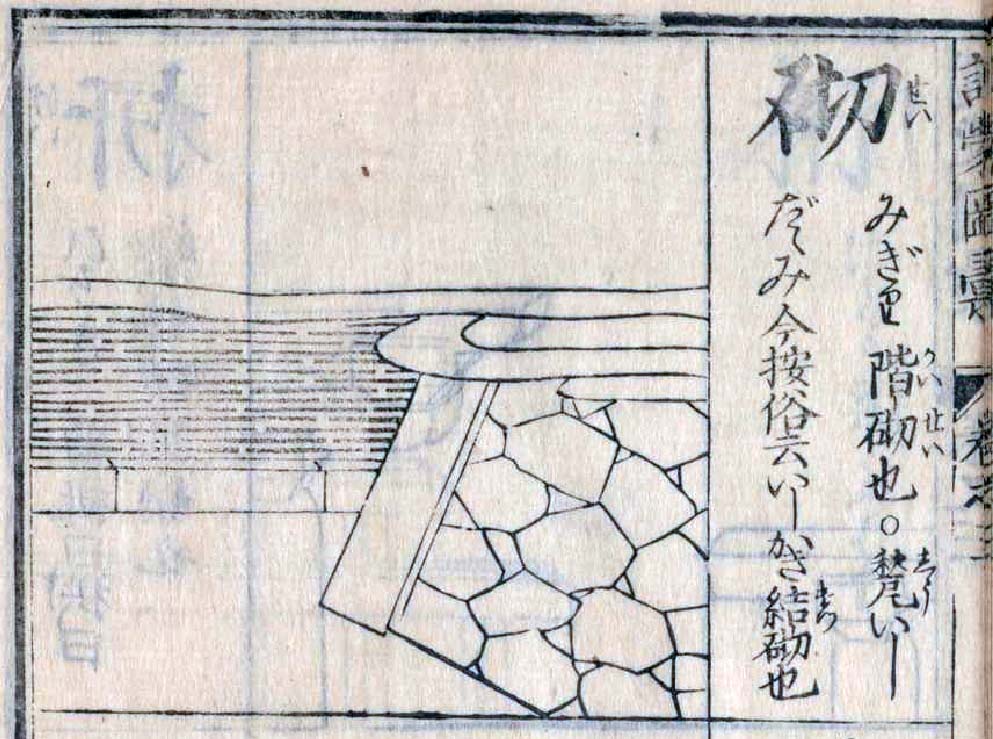 訓蒙圖彙 卷之三
砌
せい
みぎり 階砌也○甃いし
かい せい しう
だゝみ今按俗云いしがき結砌也